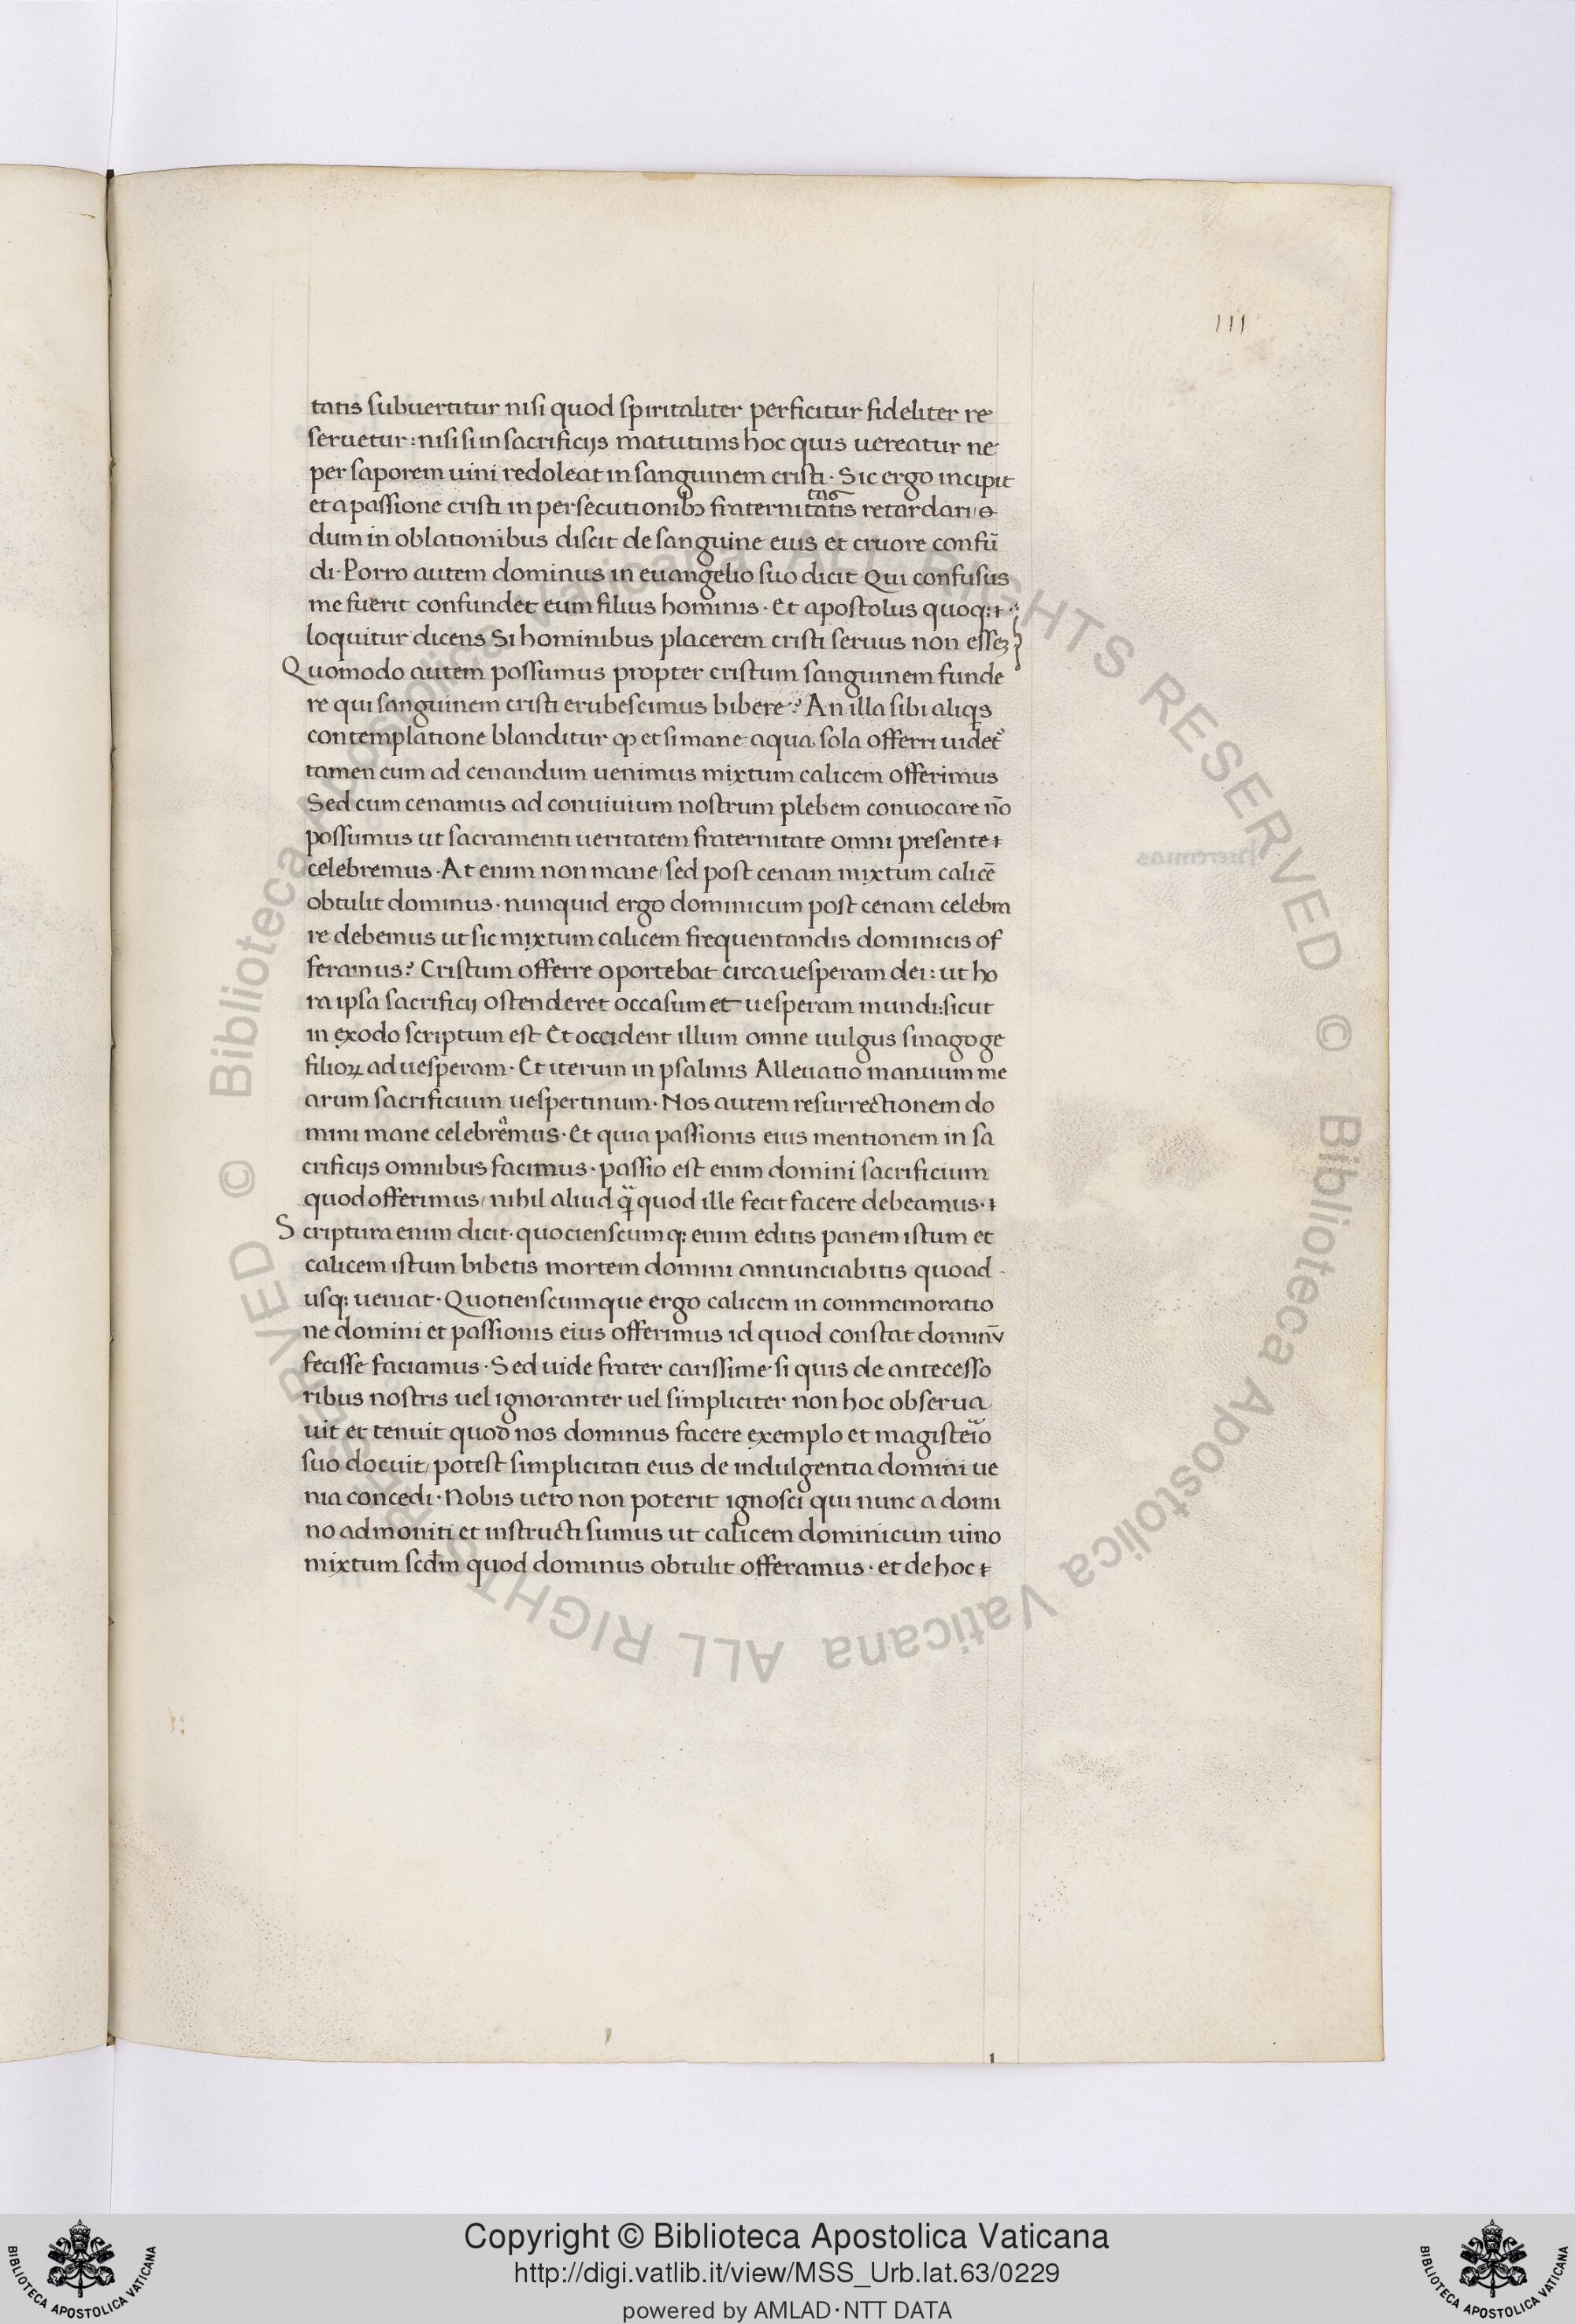 111
tatis subuertitur nisi quod spiritaliter perficitur fideliter re
seruetur: nisi si in sacrificijs matutinis hoc quis uereatur ne
per saporem uini redoleat in sanguinem cristi. Sic ergo incipit
tas
et a passione cristi in persecutionibꝫ fraternitatis retardari
dum in oblationibus discit de sanguine eius et cruore confū
di. Porro autem dominus in euangelio suo dicit Qui confusus
me fuerit confundet eum filius hominis. Et apostolus quoq:
loquitur dicens Si hominibus placerem cristi seruus non esseꝫ
Quomodo autem possumus propter cristum sanguinem funde
re qui sanguinem cristi erubescimus bibere? An illa sibi aliqͥs
contemplatione blanditur ꝙ etsi mane aqua sola offerri uidet᷑
tamen cum ad cenandum uenimus mixtum calicem offerimus
Sed cum cenamus ad conuiuium nostrum plebem conuocare nō
possumus ut sacramenti ueritatem fraternitate omni presente
celebremus. At enim non mane/ sed post cenam mixtum calicē
obtulit dominus. nunquid ergo dominicum post cenam celebra
re debemus ut sic mixtum calicem frequentandis dominicis of
feramus? Cristum offerre oportebat circa uesperam dei: ut ho
ra ipsa sacrificij ostenderet occasum et uesperam mundi: sicut
in exodo scriptum est Et occident illum omne uulgus sinagoge
filioꝝ ad uesperam. Et iterum in psalmis Alleuatio manuum me
arum sacrificium uespertinum. Nos autem resurrectionem do
mini mane celebremus. Et quia passionis eius mentionem in sa
crificijs omnibus facimus. passio est enim domini sacrificium
quod offerimus/ nihil aliud qᷓ quod ille fecit facere debeamus.
Scriptura enim dicit. quocienscumq: enim editis panem istum et
calicem istum bibetis mortem domini annunciabitis quoad
usq: ueniat. Quotienscumque ergo calicem in commemoratio
ne domini et passionis eius offerimus id quod constat dominū
fecisse faciamus. Sed uide frater carissime si quis de antecesso
ribus nostris uel ignoranter uel simpliciter non hoc obserua
uit et tenuit quod nos dominus facere exemplo et magisteᷓio
suo docuit/ potest simplicitati eius de indulgentia domini ue
nia concedi. Nobis uero non poterit ignosci qui nunc a domi
no admoniti et instructi sumus ut calicem dominicum uino
mixtum scd̄m quod dominus obtulit offeramus. et de hoc
© Biblioteca Apostolica Vaticana ALL RIGHTS RESERVED © Biblioteca Apostolica Vaticana ALL RIGHTS RESERVED
BIBLIOTECA APOSTOLICA VATICANA
Copyright © Biblioteca Apostolica Vaticana
http://digi.vatlib.it/view/MSS_Urb.lat.63/0229
powered by AMLAD·NTT DATA
BIBLIOTECA APOSTOLICA VATICANA